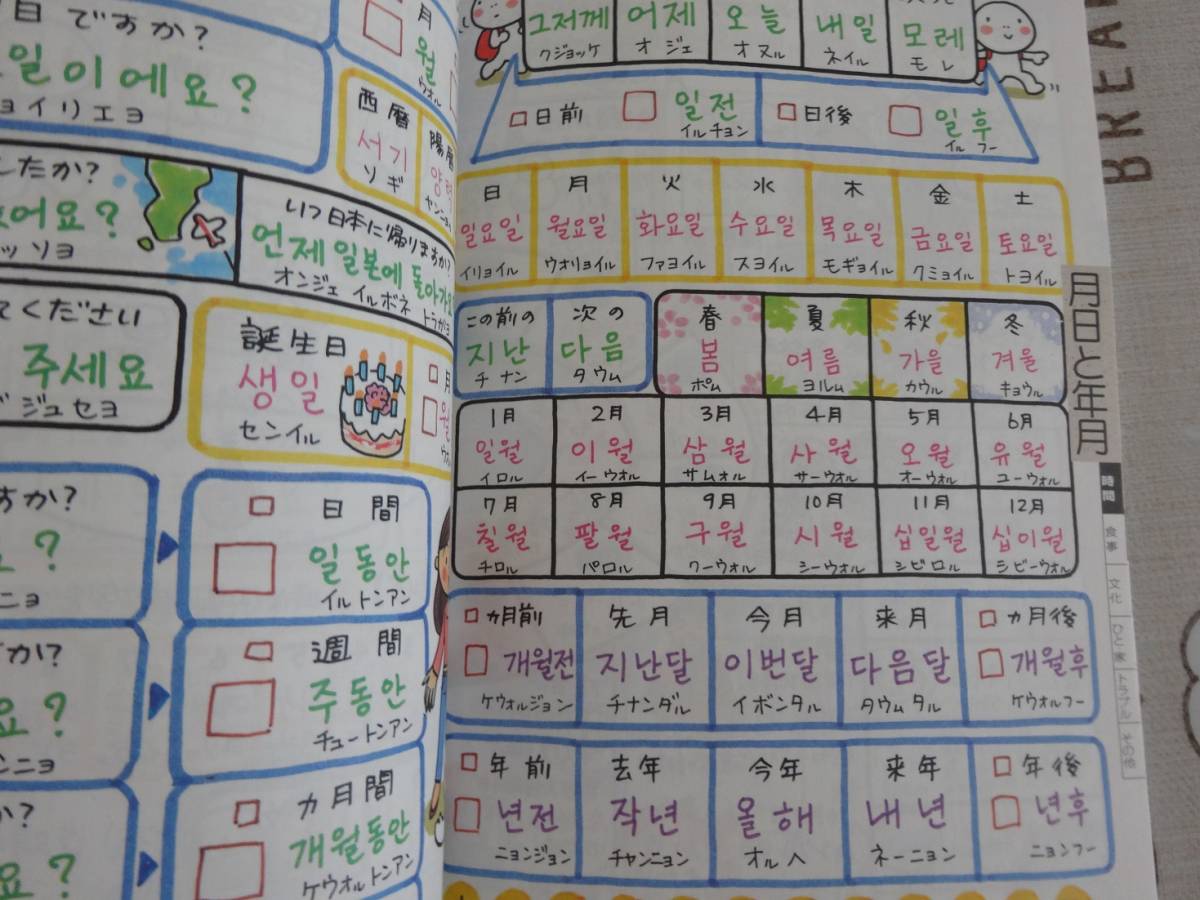 日ですか?
일이에요?
ョイリエヨ
月
월
ウォル
西暦
서기
ソギ
陽暦
したか?
어요?
ッソヨ
いつ日本に帰りますか?
언제 일본에 돌아가요
オンジェ イルボネ トラガヨ
てください
주세요
ジュセヨ
誕生日
생일
センイル
□月
すか?
?
ニョ
□日間
□일동안
イルトンアン
か?
요?
ニョ
□週間
□주동안
チュートンアン
か?
요?
□ヵ月間
□개월동안
ケウォルトンアン
그저께 어제 오늘 내일 모레
クジョッケ オジェ オヌル ネイル モレ
□日前 □일전 □日後 □일후
イルチョン イルフー
日 月 火 水 木 金 土
일요일 월요일 화요일 수요일 목요일 금요일 토요일
イリョイル ウォリョイル ファヨイル スヨイル モギョイル クミョイル トヨイル
この前の 次の
지난 다음
チナン タウム
春 夏 秋 冬
봄 여름 가을 겨울
ポム ヨルム カウル キョウル
1月 2月 3月 4月 5月 6月
일월 이월 삼월 사월 오월 유월
イロル イーウォル サムォル サーウォル オーウォル ユーウォル
7月 8月 9月 10月 11月 12月
칠월 팔월 구월 시월 십일월 십이월
チロル パロル クーウォル シーウォル シビロル シビーウォル
□ヵ月前 先月 今月 来月 □ヵ月後
□개월전 지난달 이번달 다음달 □개월후
ケウォルジョン チナンダル イボンタル タウムタル ケウォルフー
□年前 去年 今年 来年 □年後
□년전 작년 올해 내년 □년후
ニョンジョン チャンニョン オルヘ ネーニョン ニョンフー
月日と年月
時間
食事
文化
ひと・家
トラブル
その他
BREA